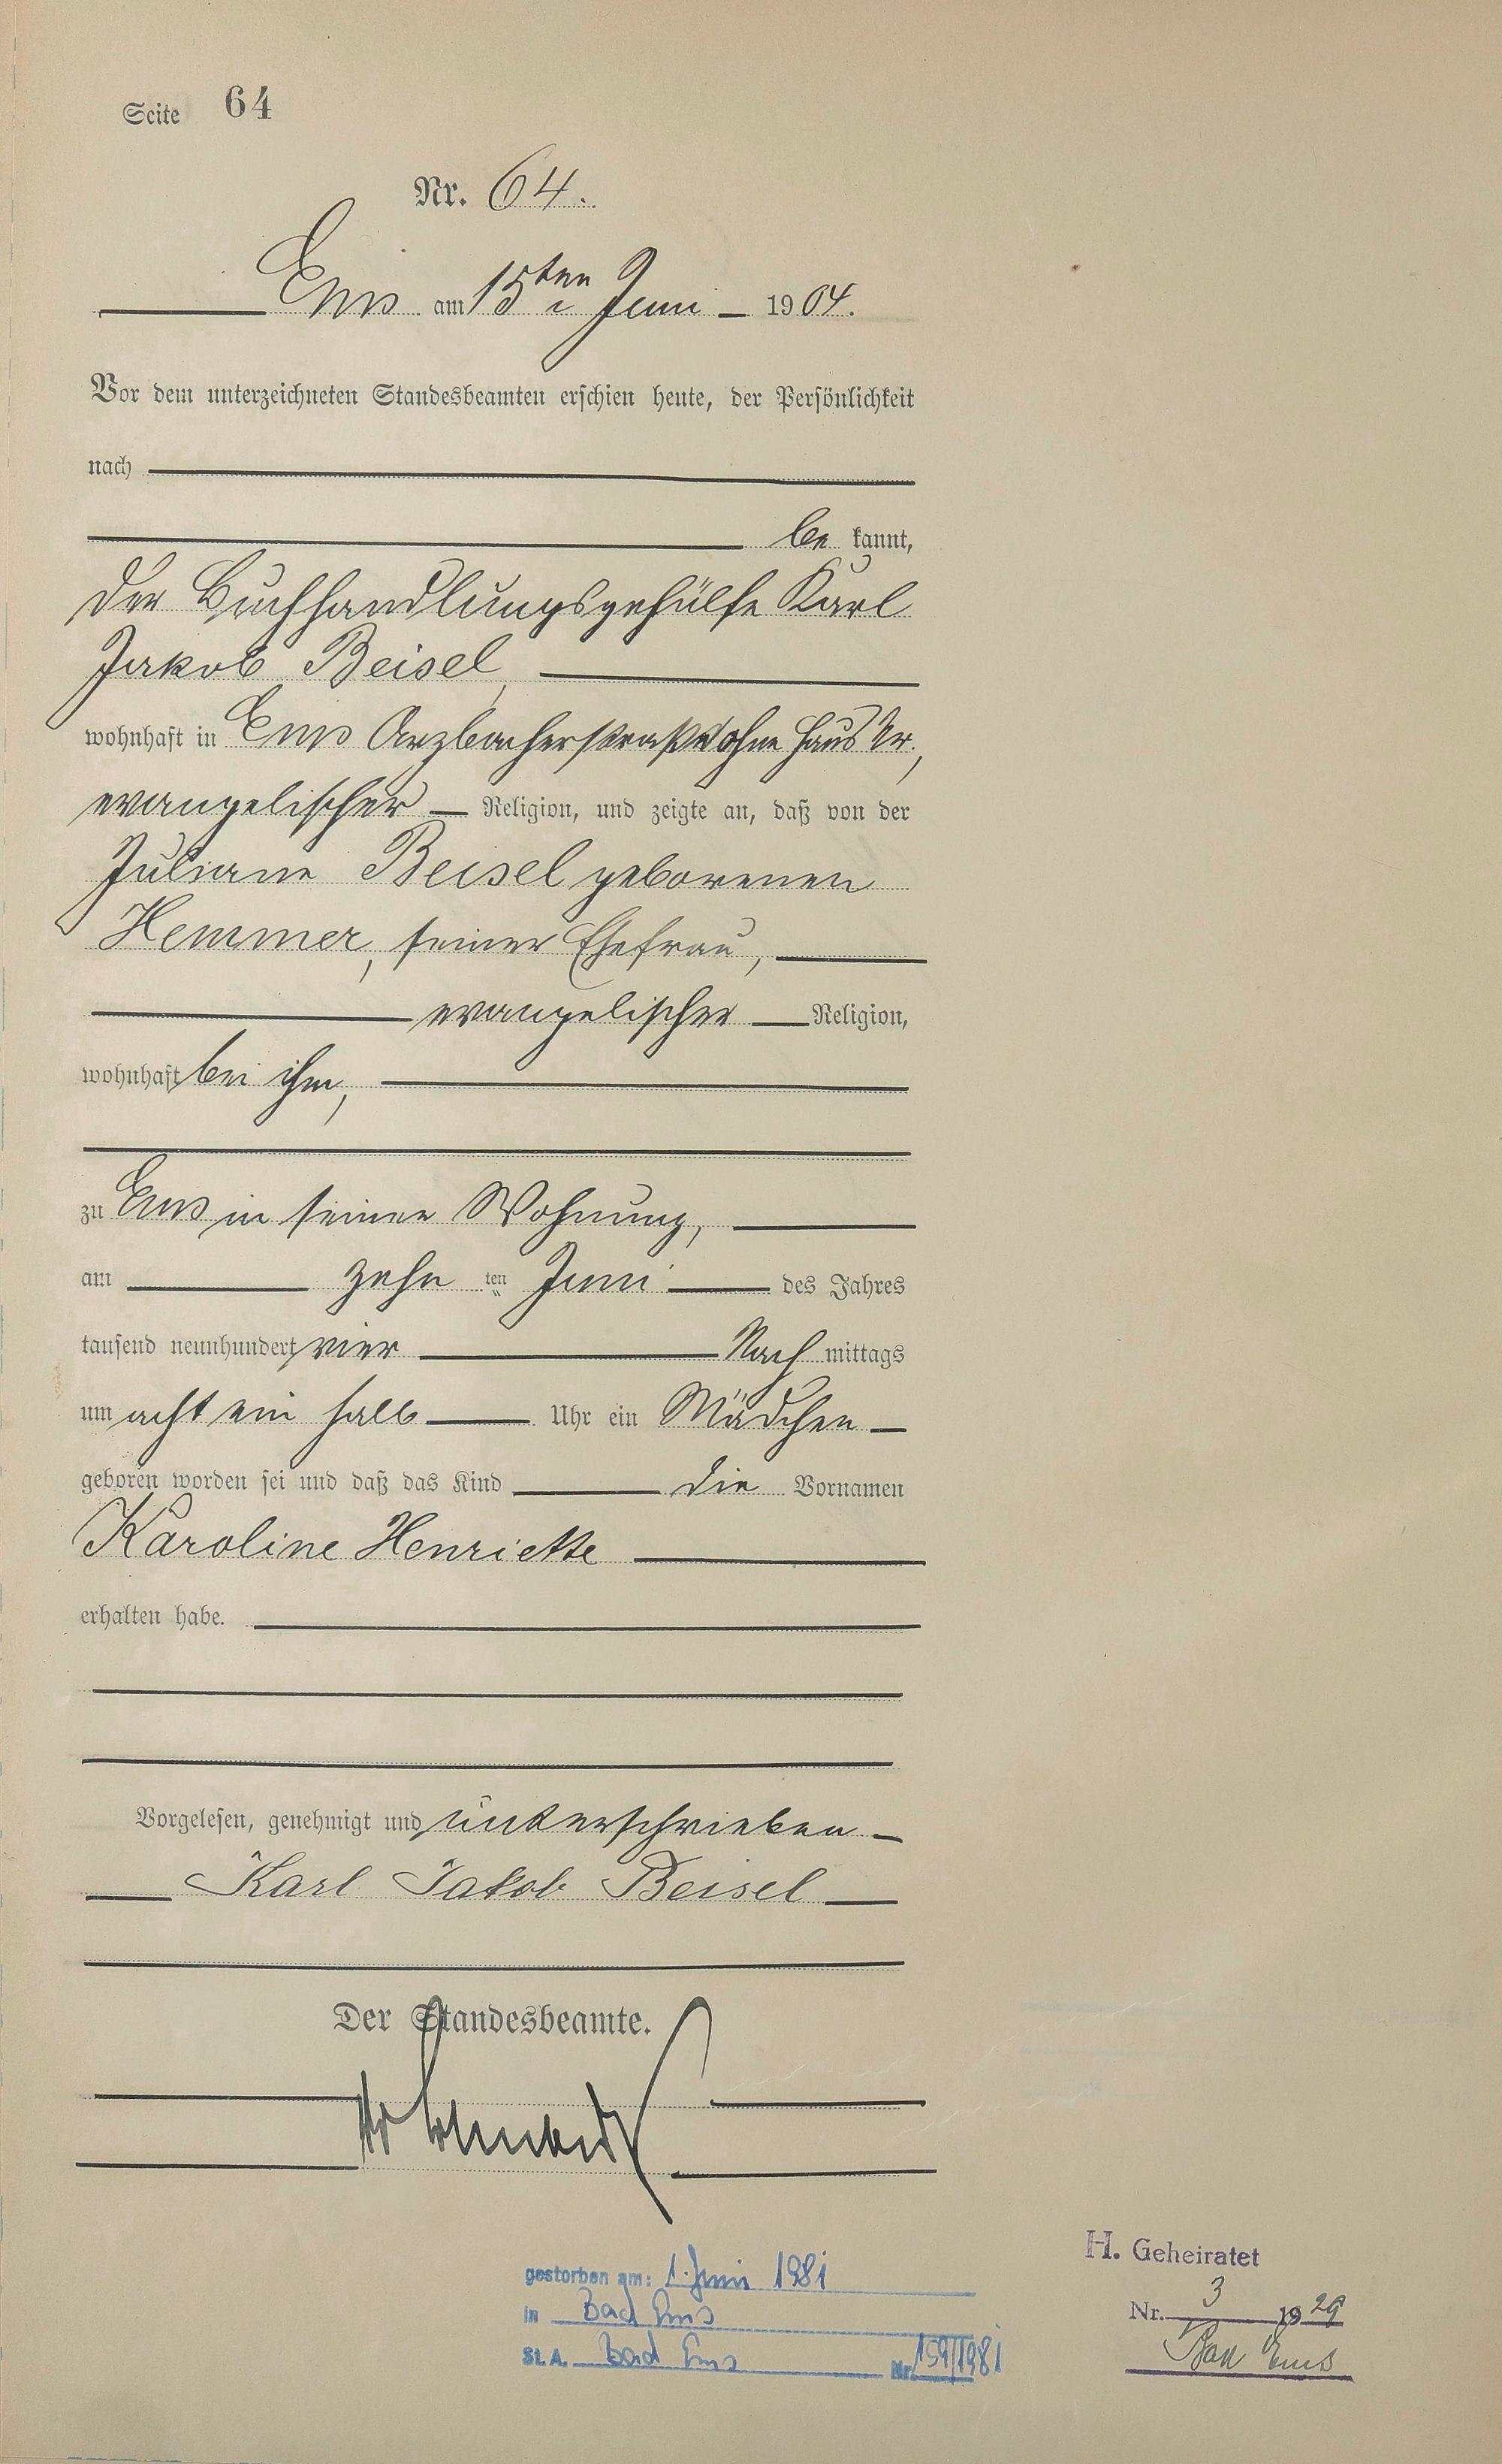 Seite 64
Nr. 64.
Ems am 15ten Juni 1904.
Vor dem unterzeichneten Standesbeamten erschien heute, der Persönlichkeit
nach
be kannt,
der Buchhandlungsgehülfe Karl
Jakob Beisel,
wohnhaft in Ems Arzbacherstraße ohne Haus Nr.,
evangelischer Religion, und zeigte an, daß von der
Juliane Beisel geborenen
Hemmer, seiner Ehefrau,
evangelischer Religion,
wohnhaft bei ihm,
zu Ems in seiner Wohnung,
am zehn ten Juni des Jahres
tausend neunhundert vier Nach mittags
um acht ein halb Uhr ein Mädchen
geboren worden sei und daß das Kind die Vornamen
Karoline Henriette
erhalten habe.
Vorgelesen, genehmigt und unterschrieben
Karl Jakob Beisel
Der Standesbeamte.
gestorben am: 1. Juni 1981
in Bad Ems
St. A. Bad Ems Nr. 159/1981
H. Geheiratet
Nr. 3 1929
Bad Ems